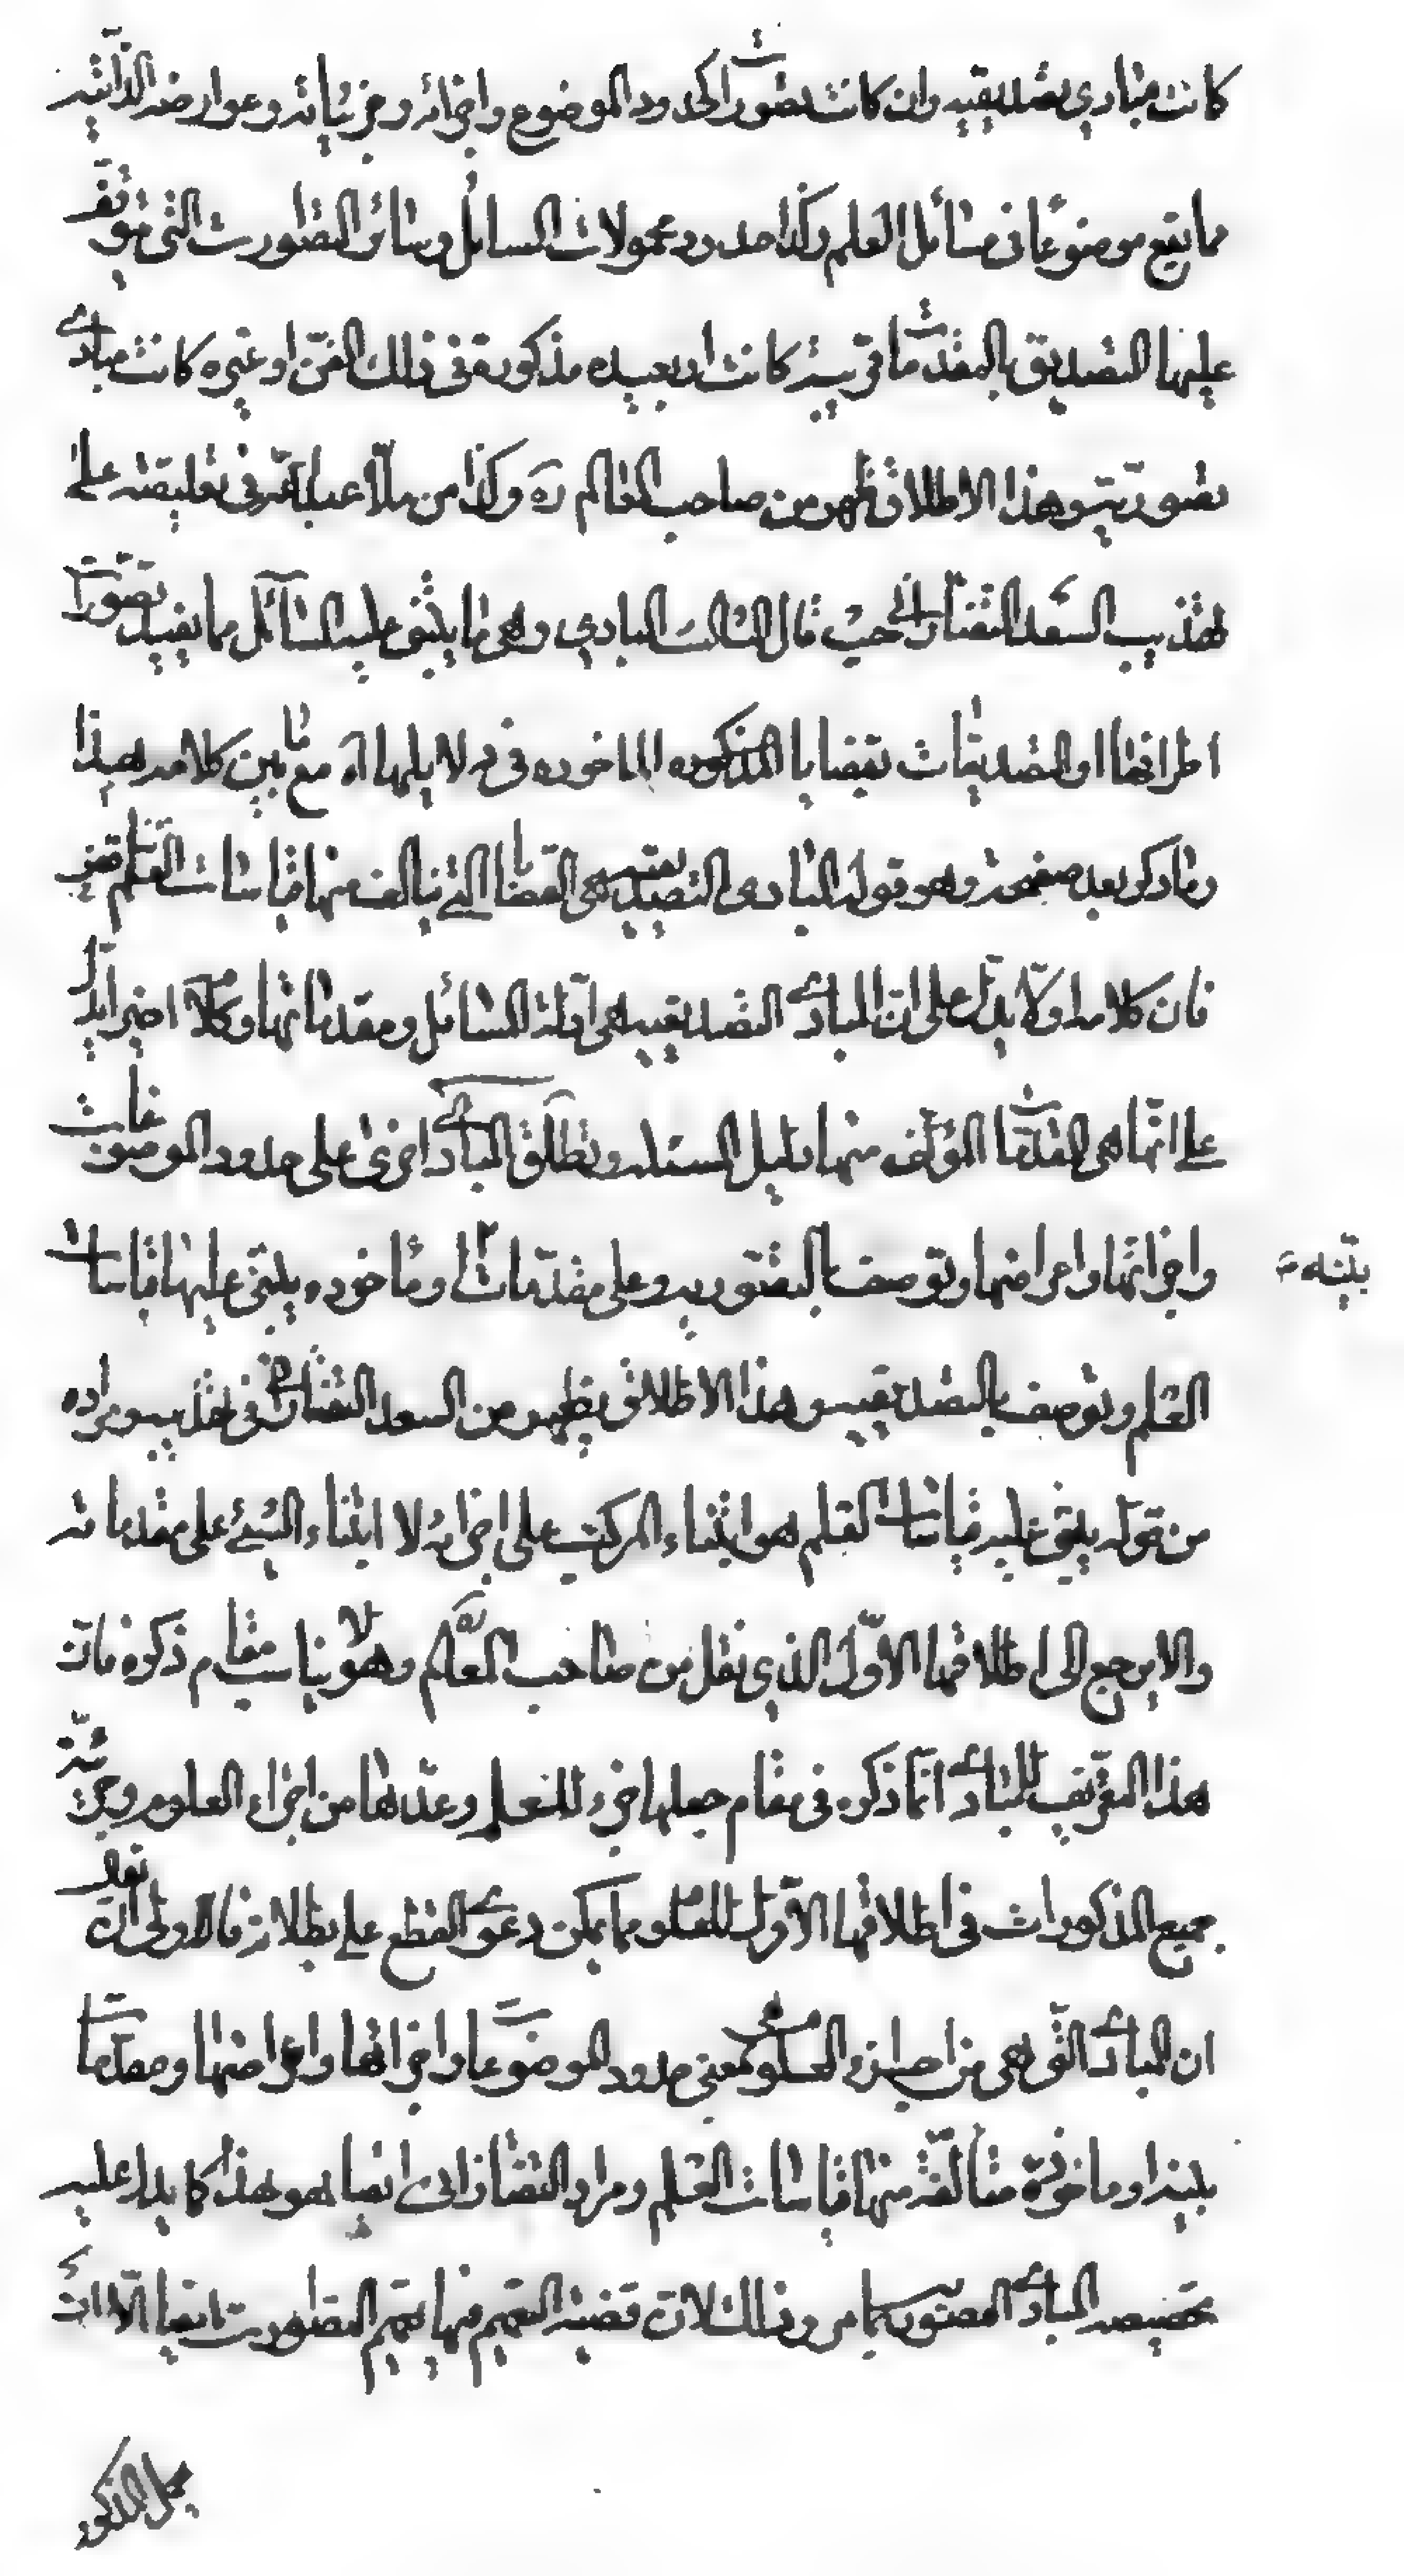 كانت مبادي تصديقيه وان كانت تصورات كحدود الموضوع واجزائه وجزئياته وعوارضه الذاتيه
مما يقع موضوعا في مسائل العلم وكذا حدود محمولات المسائل وسائر التصورات التي يتوقف
عليها التصديق بالمقدمات قريبة كانت او بعيده مذكورة في ذلك الفن او غيره كانت مبادي
تصوريه وهذا الاطلاق يظهر من صاحب المعالم ره وكذا من ملا عبد الله في تعليقته على
تهذيب السعد التفتازاني حيث قال الثالث المبادي وهي ما يبتنى عليه المسائل مما يفيد تصورات
اطرافها او التصديقات بقضايا المذكوره الماخوده في دلايلها اه مع ما بين كلامه هذا
وما ذكر بعد صفحة وهو قوله المبادى التصديقيه هي القضايا التي يتالف منها قياسات العلم
فان كلامه اولا يدل على ان المبادي التصديقيه هي ادلة المسائل ومقدماتها وكلامه اخيرا يدل
على انها هي المقدمات المؤلف منها دليل المسئله وتطلق المبادي اخرى على حدود الموضوعات
واجزائها واعراضها وتوصف بالتصوريه وعلى مقدمات او ماخوده يبتنى عليها قياسات
بينه
العلم وتوصف بالتصديقيه وهذا الاطلاق يظهر من السعد التفتازاني في تهذيبه ومراده
من قوله يبتنى عليه قياسات العلم هو ابتناء المركب على اجزائه لا ابتناء الشئ على مقدماته
والا يرجع الى اطلاقها الاول الذي نقل من صاحب المعالم وهو لا يناسب مقام ذكره فان
هذا التعريف للمبادي انما ذكره في مقام جعلها جزء للعلم وعدها من اجزاء العلوم
جميع المذكورات في اطلاقها الاول للعلوم مما يمكن دعوى القطع على بطلانه فالاولى ان
ان المبادي التي هي من اجزاء العلوم هي بمعنى حدود الموضوعات واجزائها واعراضها ومقدمات
بينه او ماخوذة متالفة منها قياسات العلم ومراد التفتازاني ايضا هو هذا كما يدل عليه
تخصيصه المبادي التصوريه بما مر وذلك لان قضية التعميم فيها تعميم التصورات ايضا الا ان